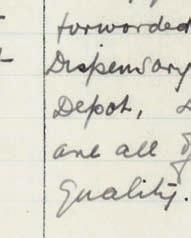 forwarded
Dispensary
Depot,
are all
quality.